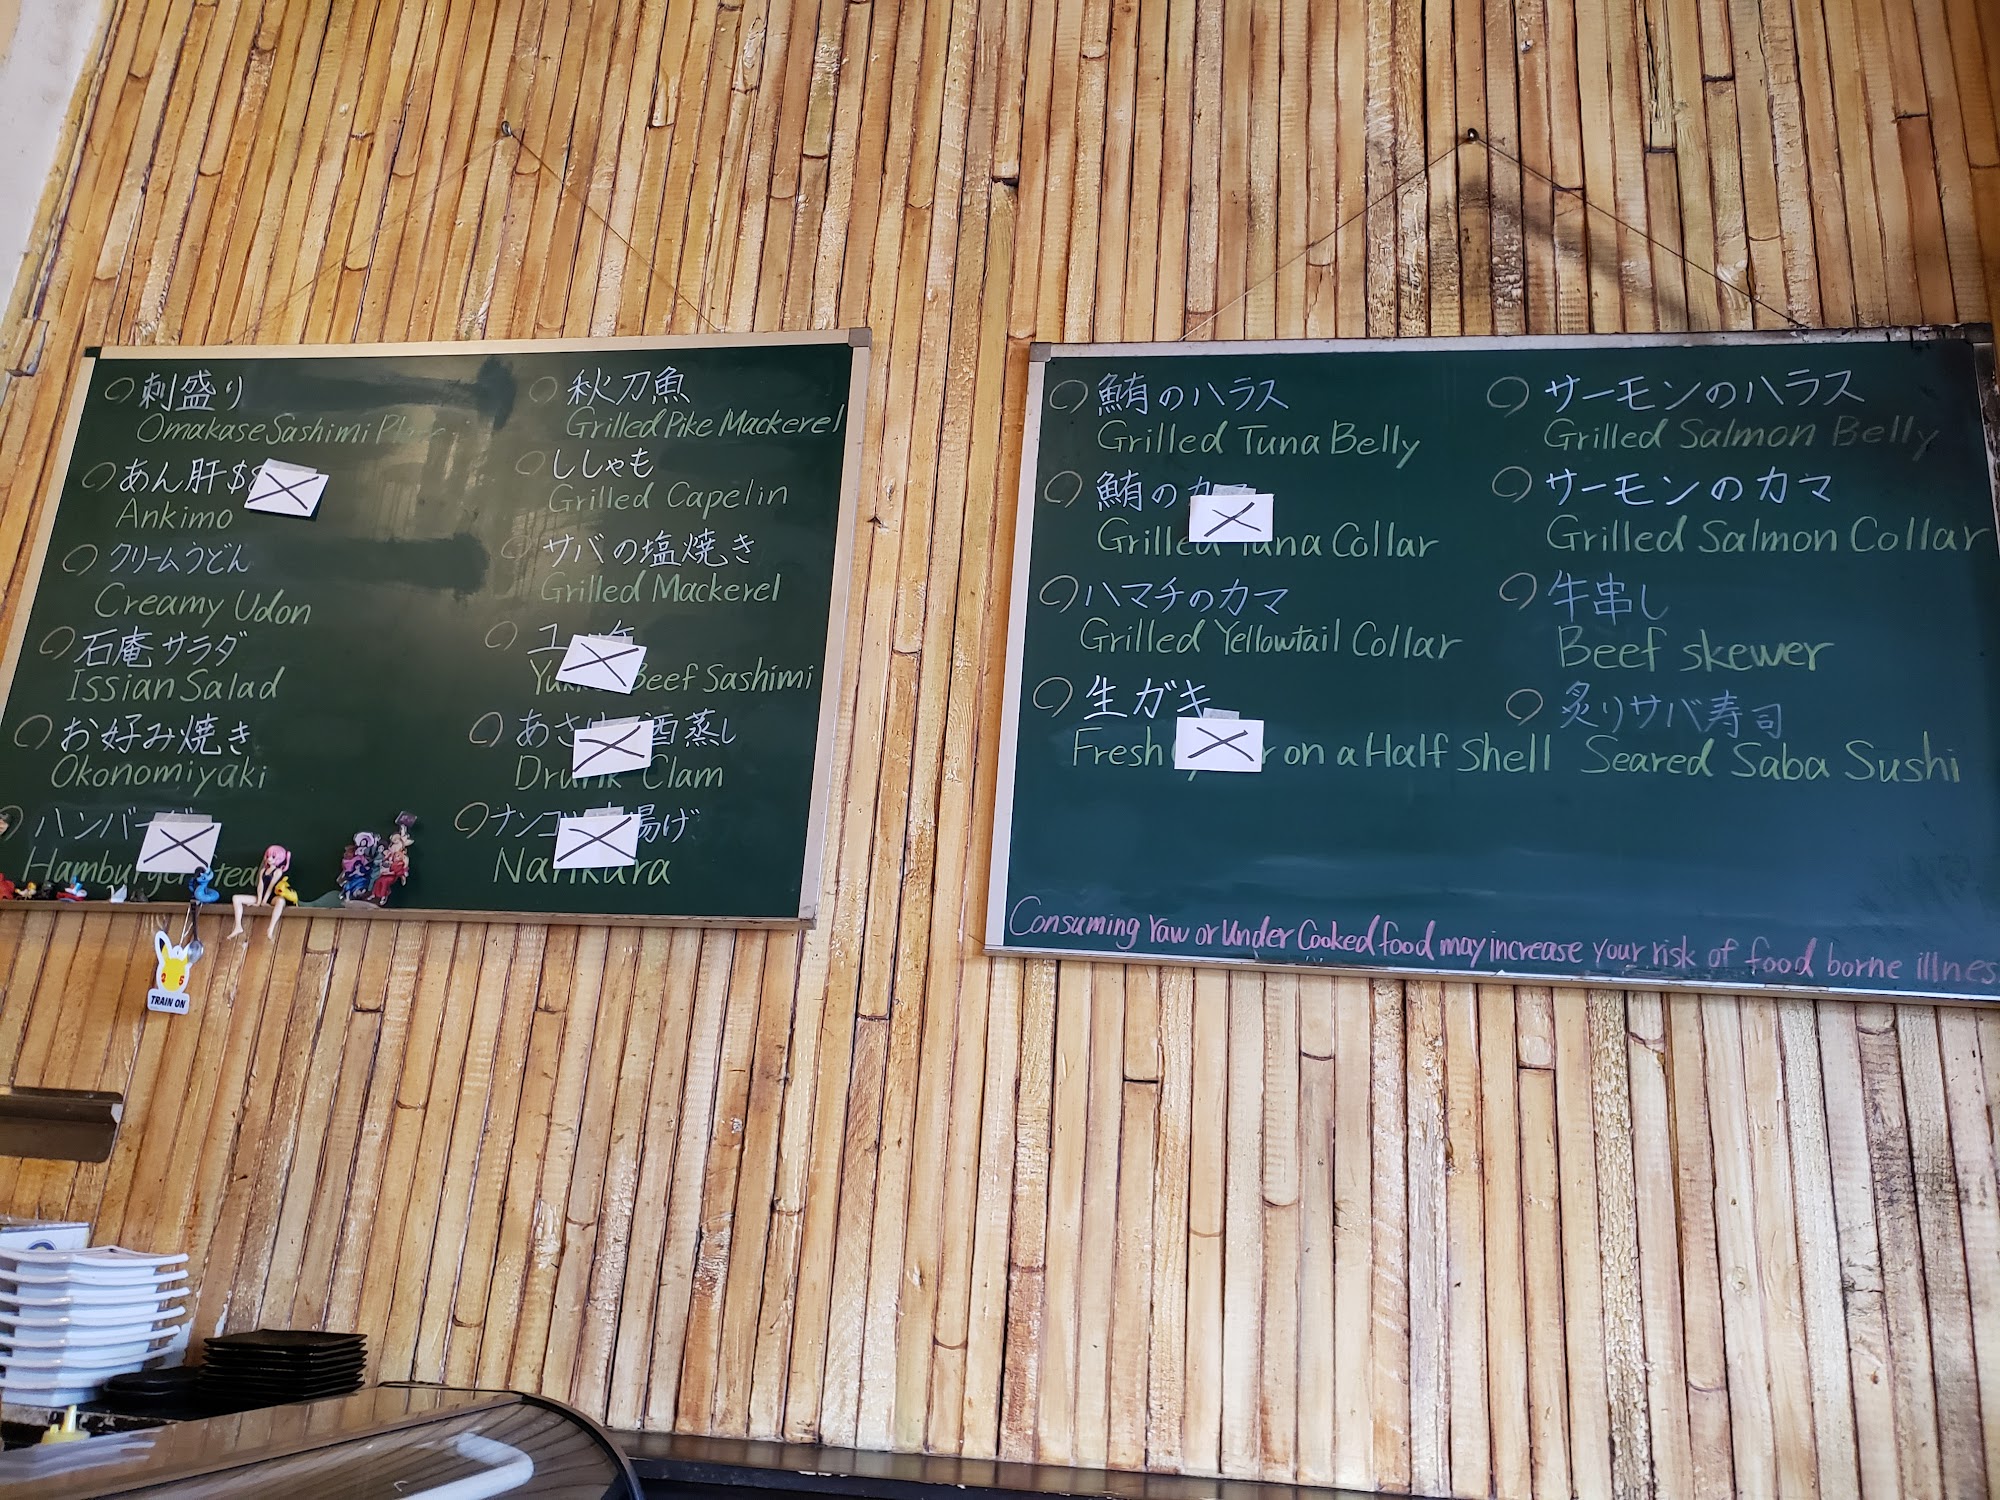 刺盛り
Omakase Sashimi
あん肝 $
Ankimo
クリームうどん
Creamy Udon
石庵サラダ
Issian Salad
お好み焼き
Okonomiyaki
ハンバー
Hambur
秋刀魚
Grilled Pike Mackerel
ししゃも
Grilled Capelin
サバの塩焼き
Grilled Mackerel
ユッケ
Beef Sashimi
あさ 酒蒸し
Drunk Clam
ナンコツ 揚げ
Nankura
鮪のハラス
Grilled Tuna Belly
鮪のカマ
Grilled Tuna Collar
ハマチのカマ
Grilled Yellowtail Collar
生ガキ
Fresh on a Half Shell
サーモンのハラス
Grilled Salmon Belly
サーモンのカマ
Grilled Salmon Collar
牛串し
Beef skewer
炙りサバ寿司
Seared Saba Sushi
Consuming raw or Under Cooked food may increase your risk of food borne illnes
TRAIN ON